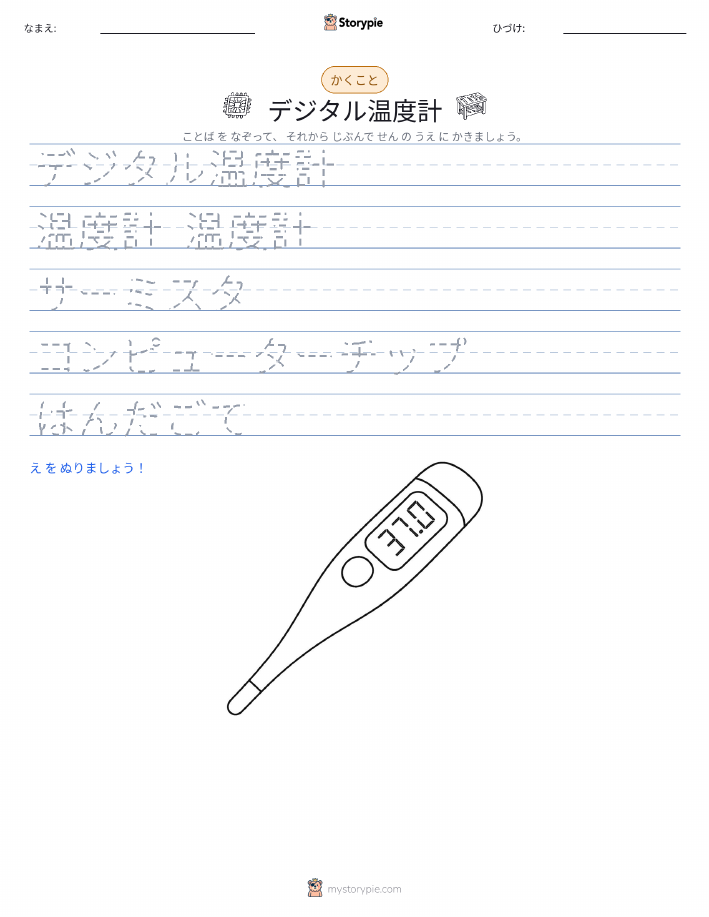 なまえ:
Storypie
ひづけ:
かくこと
デジタル温度計
ことば を なぞって、 それから じぶんで せん の うえ に かきましょう。
デジタル温度計
温度計 温度計
サーミスタ
コンピューターチップ
はんだごて
え を ぬりましょう！
37.0
mystorypie.com